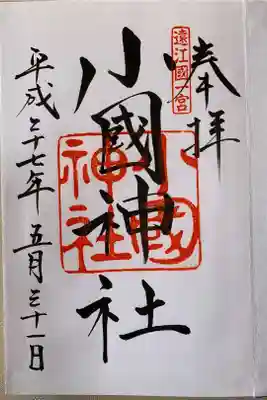 奉拝
遠江國一宮
小國神社
小國神社
平成二十七年五月三十一日